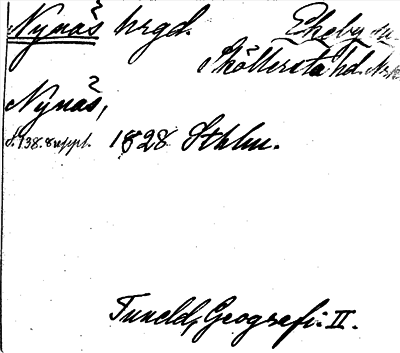 Nynäs hrgd. Ekeby sn.
Sköllersta hd. Nrk.
Nynäs,
s. 138. suppl. 1828 Sthlm.
Tuneld, Geografi. II.